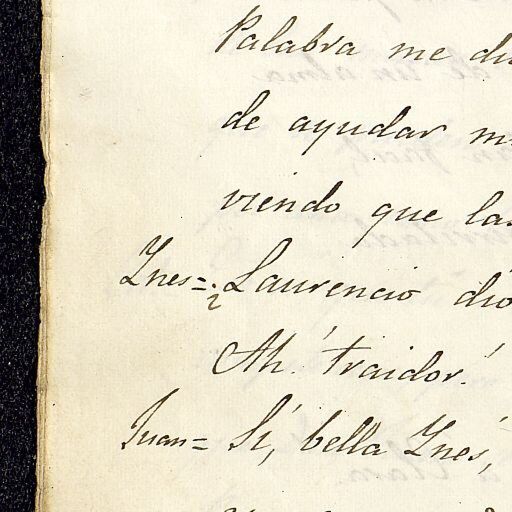 Palabra me di
de ayudar m
viendo que las
Ynes=¿Laurencio dió
Ah! traidor!
Juan= Sí, bella Ynés,